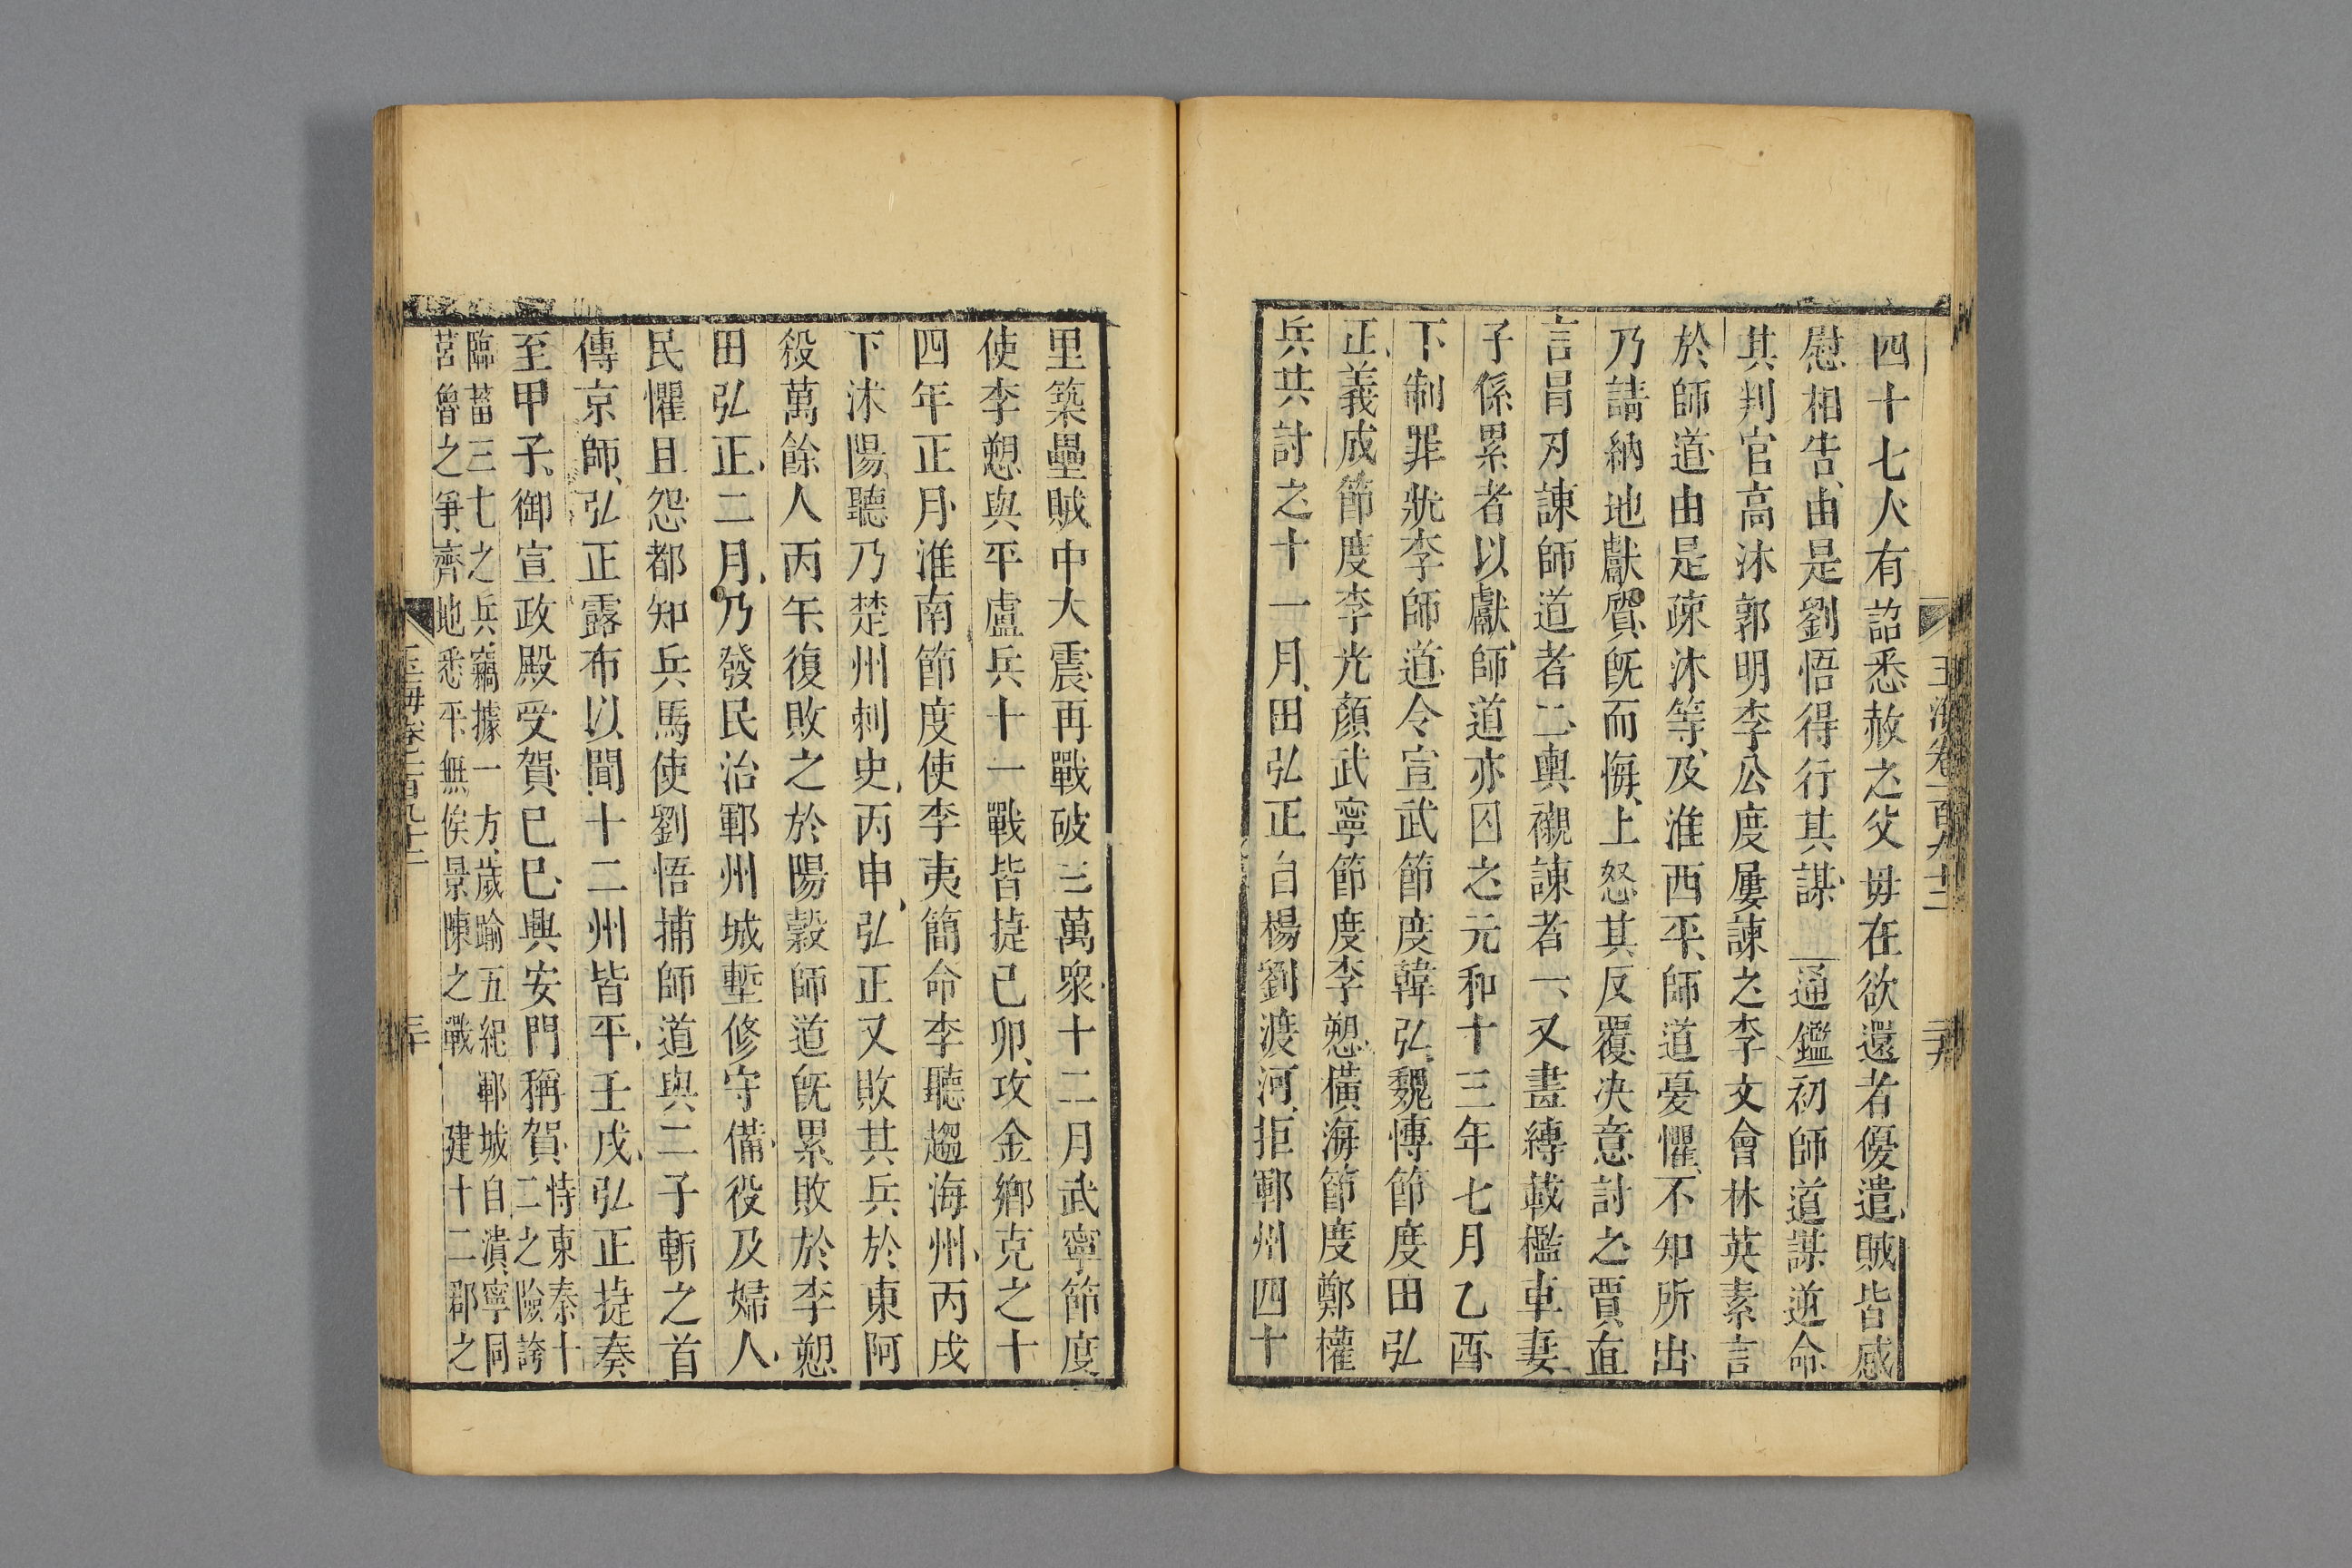 四十七人有詔悉赦之父毋在欲還者優遣賊皆感
慰相告由是劉悟得行其謀 通鑑初師道謀逆命
其判官高沐郭明李公度屢諫之李文會林英素言
於師道由是疎沐等及淮西平師道憂懼不知所出
乃請納地獻質既而悔上怒其反覆决意討之賈直
言冒刃諫師道者二輿櫬諫者一又畫縛載檻車妻
子係累者以獻師道亦囚之元和十三年七月乙酉
下制罪狀李師道令宣武節度韓弘魏博節度田弘
正義成節度李光顏武寧節度李愬橫海節度鄭權
兵共討之十一月田弘正自楊劉渡河拒鄆州四十
里築壘賊中大震再戰破三萬衆十二月武寧節度
使李愬與平盧兵十一戰皆捷已卯攻金鄉克之十
四年正月淮南節度使李夷簡命李聽趨海州丙戌
下沭陽聽乃楚州刺史丙申弘正又敗其兵於東阿
殺萬餘人丙午復敗之於陽穀師道既累敗於李愬
田弘正二月乃發民治鄆州城塹修守備役及婦人
民懼且怨都知兵馬使劉悟捕師道與二子斬之首
傳京師弘正露布以聞十二州皆平壬戌弘正捷奏
至甲子御宣政殿受賀已巳興安門稱賀恃東秦十
二之險誇
臨菑三七之兵竊據一方歲踰五紀鄆城自潰寧同
莒魯之爭齊地悉平無俟景陳之戰 建十二郡之
玉海卷一百九十二